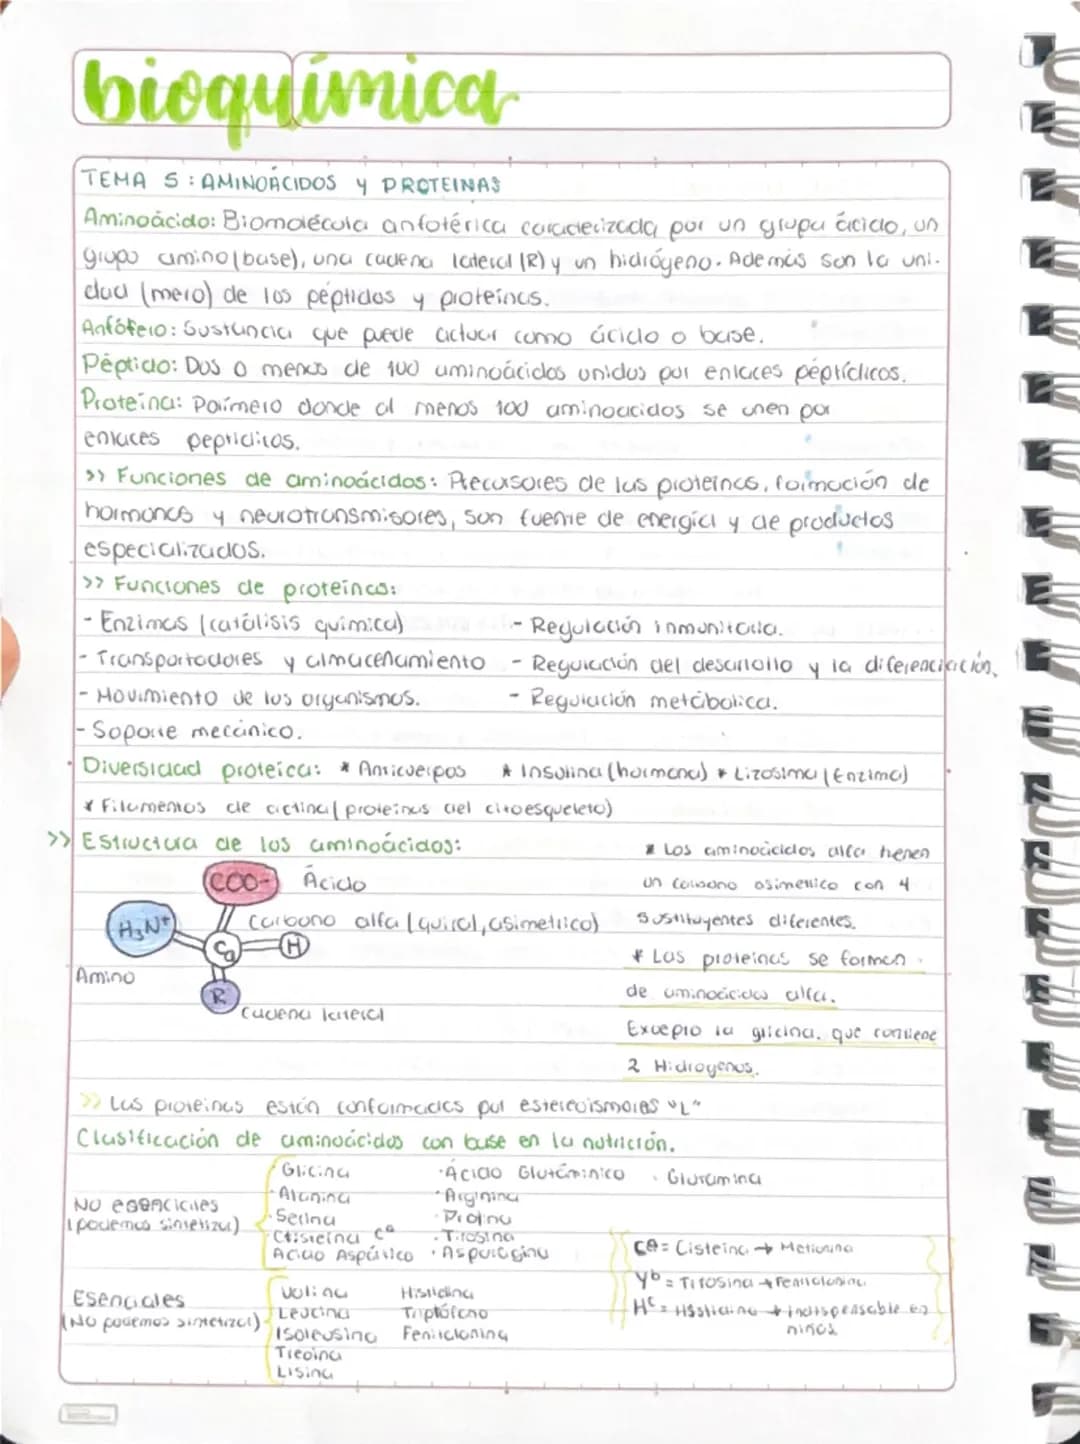 bioquímica
TEMA 5: AMINOÁCIDOS y PROTEINAS
Aminoácido: Biomolécula anfotérica caracterizada por un grupo ácido, un
grupo amino (base), una cadena lateral (R) y un hidrógeno. Además son la uni-
dad (mero) de los péptidos y proteínas.
Anfótero: Sustancia que puede actuar como ácido o base.
Péptido: Dos o menos de 100 aminoácidos unidos por enlaces péptídicos.
Proteína: Polímero donde al menos 100 aminoacidos se unen por
enlaces peptidicos.
>> Funciones de aminoácidos: Precursores de las proteínas, formación de
hormonas y neurotransmisores, son fuente de energía y de productos
especializados.
>> Funciones de proteínas:
- Enzimas (catálisis química) - Regulación inmunitaria.
- Transportadores y almacenamiento - Regulación del desarrollo y la diferenciación.
- Movimiento de los organismos. - Regulación metábolica.
- Soporte mecánico.
Diversidad proteica: * Anticuerpos * Insulina (hormona) * Lizosima (Enzima)
* Filamentos de actina (proteinas del citoesqueleto)
>> Estructura de los aminoácidos:
* Los aminoácidos alfa tienen
COO- Ácido
un carbono asimetrico con 4
H3N+ Carbono alfa (quiral, asimetrico)
sustituyentes diferentes.
Cα H
* Las proteinas se forman
Amino
de aminoácidos alfa.
R
Cadena lateral
Excepto la glicina, que contiene
2 Hidrogenos.
>> Las proteinas están conformadas por estereoismoros "L"
Clasificación de aminoácidos con base en la nutrición.
Glicina · Ácido Glutámínico · Glutamina
NO esenciales · Alanina · Arginina
(podemos sintetizar) · Serina · Prolina
Cisteína Ca · Tirosina
Ácido Aspártico · Asparagina
Ca = Cisteína → Metionina
Yb = Tirosina → Fenilalanina
Hc = Histidina → indispensable en
niños
Esenciales Valina Histidina
(No podemos sintetizar) Leucina Triptófano
Isoleusina Fenilalanina
Treoina
Lisina